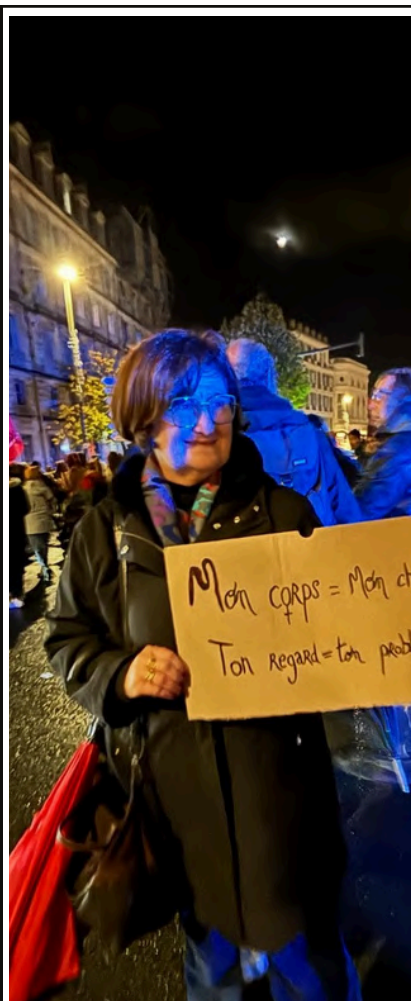 Mon corps = Mon ch
Ton regard = ton probl